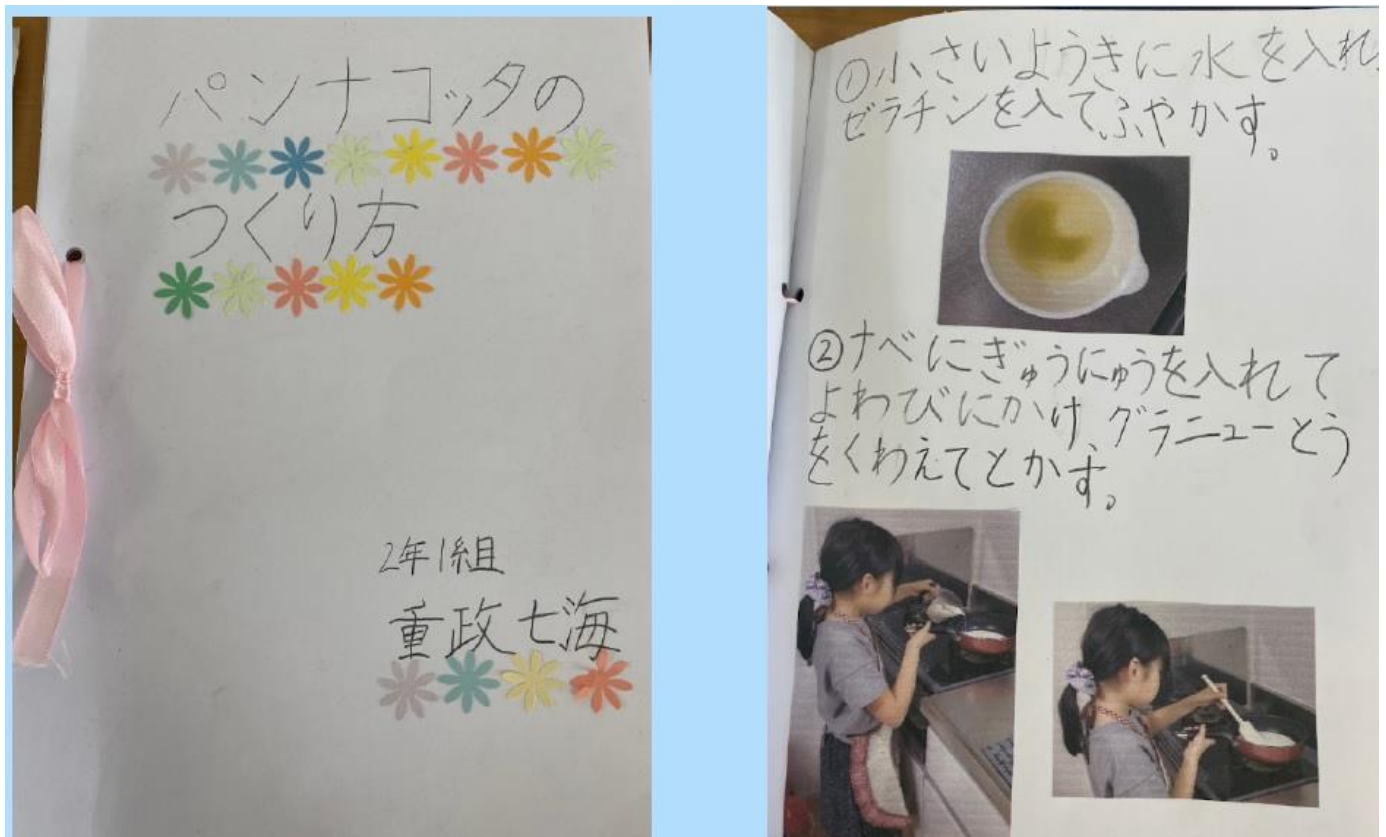 パンナコッタの
つくり方
2年1組
重政七海
①小さいようきに水を入れ、
ゼラチンを入てふやかす。
②ナベにぎゅうにゅうを入れて
よわびにかけ、グラニューとう
をくわえてとかす。